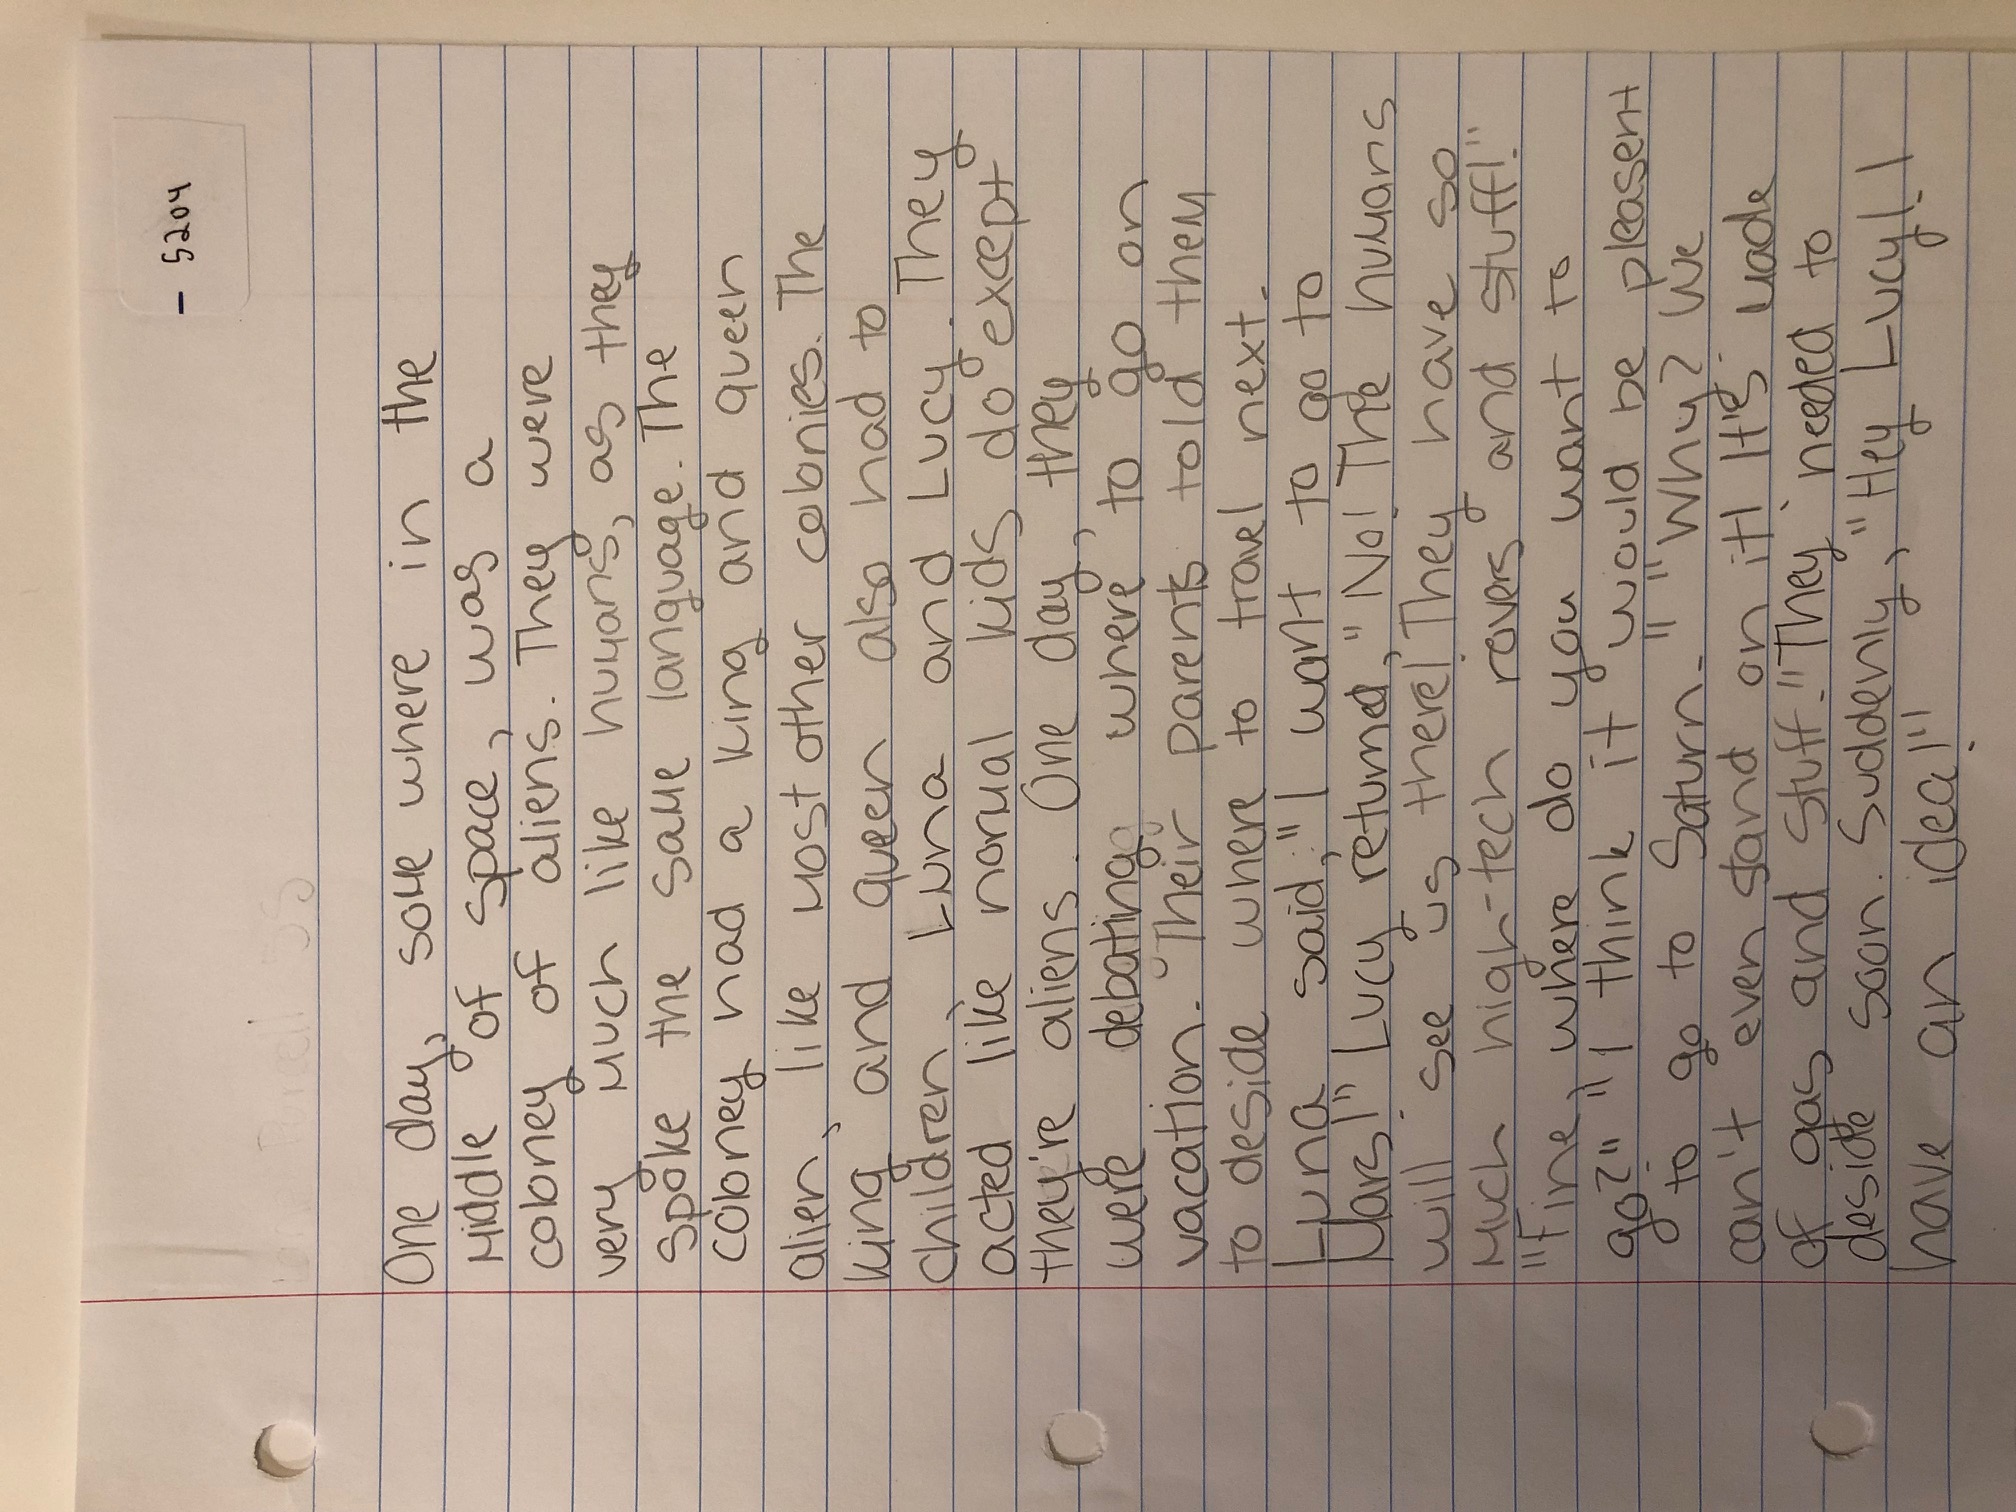 - 5204
One day, some where in the
middle of space, was a
coloney of aliens. They were
very much like humans, as they
spoke the same language. The
coloney had a king and queen
alien, like most other colonies. The
king and queen also had to
children, Luna and Lucy. They
acted like normal kids do except
they're aliens. One day, they
were debating where to go on
vacation. Their parents told them
to deside where to travel next.
Luna said, "I want to go to
Mars!" Lucy returned, "No! The humans
will see us there! They have so
much high-tech rovers and stuff!"
"Fine, where do you want to
go?" "I think it would be pleasent
to go to Saturn." "Why? We
can't even stand on it! It's made
of gas and stuff." They needed to
deside soon. Suddenly, "Hey Lucy! I
have an idea!"